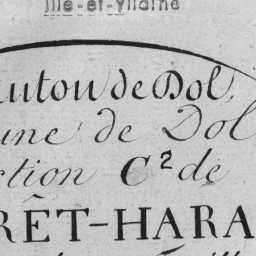 Ille-et-Vilaine
anton de Dol,
une de Dol
ction C² de
RÊT-HARA